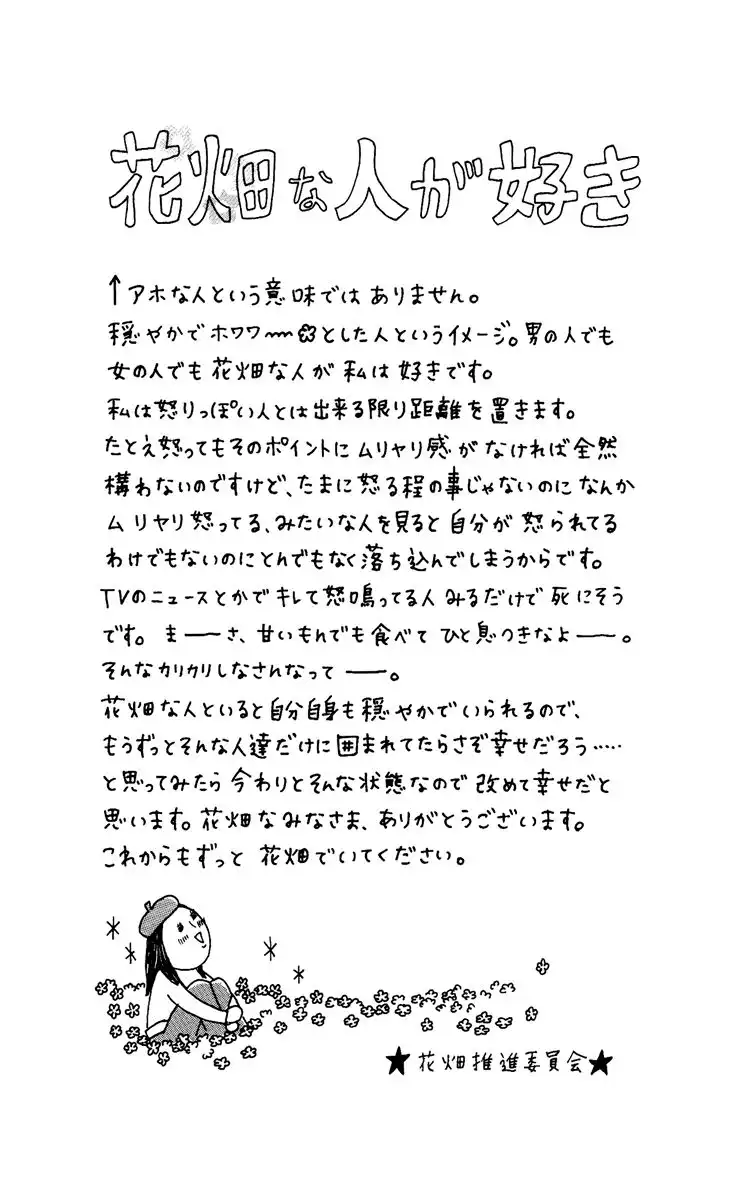 花畑な人が好き
↑アホな人という意味ではありません。
穏やかでホワワ〜〜✿とした人というイメージ。男の人でも
女の人でも花畑な人が私は好きです。
私は怒りっぽい人とは出来る限り距離を置きます。
たとえ怒ってもそのポイントにムリヤリ感がなければ全然
構わないのですけど、たまに怒る程の事じゃないのになんか
ムリヤリ怒ってる、みたいな人を見ると自分が怒られてる
わけでもないのにとんでもなく落ち込んでしまうからです。
TVのニュースとかでキレて怒鳴ってる人みるだけで死にそう
です。ま――さ、甘いもんでも食べてひと息つきなよ――。
そんなカリカリしなさんなって――。
花畑な人といると自分自身も穏やかでいられるので、
もうずっとそんな人達だけに囲まれてたらさぞ幸せだろう……
と思ってみたら今わりとそんな状態なので改めて幸せだと
思います。花畑なみなさま、ありがとうございます。
これからもずっと花畑でいてください。
★花畑推進委員会★